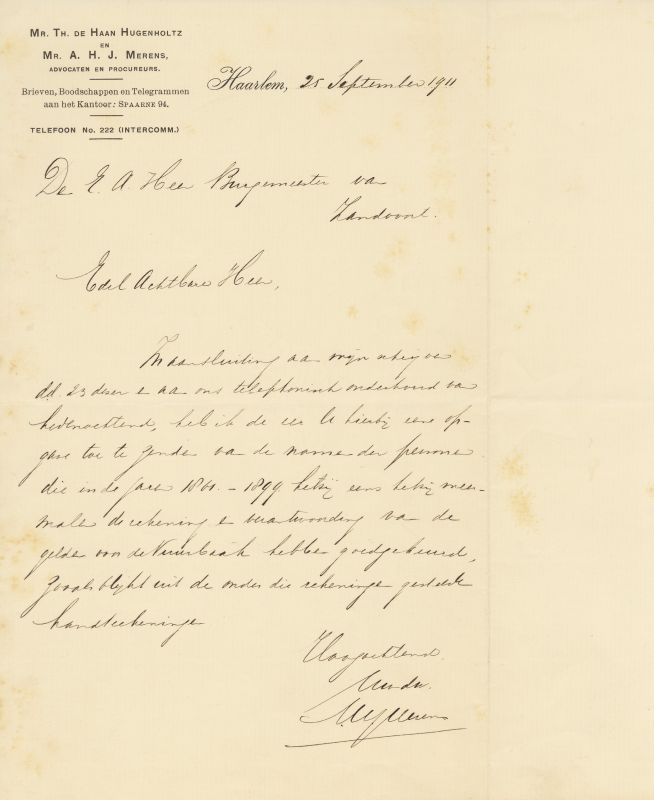 Mr. Th. de Haan Hugenholtz
en
Mr. A. H. J. Merens,
Advocaten en Procureurs.
Brieven, Boodschappen en Telegrammen
aan het Kantoor: Spaarne 94.
Telefoon No. 222 (Intercomm.)
Haarlem, 25 September 1911
De E. A. Heer Burgemeester van
Zandvoort.
Edel Achtbare Heer,
In aansluiting aan mijn schrijven
d.d. 23 dezer en aan ons telephonisch onderhoud van
hedenochtend, heb ik de eer U hierbij eene op-
gave toe te zenden van de namen der personen
die in de jaren 1861 - 1899 hetzij eens hetzij meer-
malen de rekening en verantwoording van de
gelden van de Vuurbaak hebben goedgekeurd,
zooals blijkt uit de onder die rekeningen gestelde
handteekeningen
Hoogachtend
Uw dw.
AHJMerens